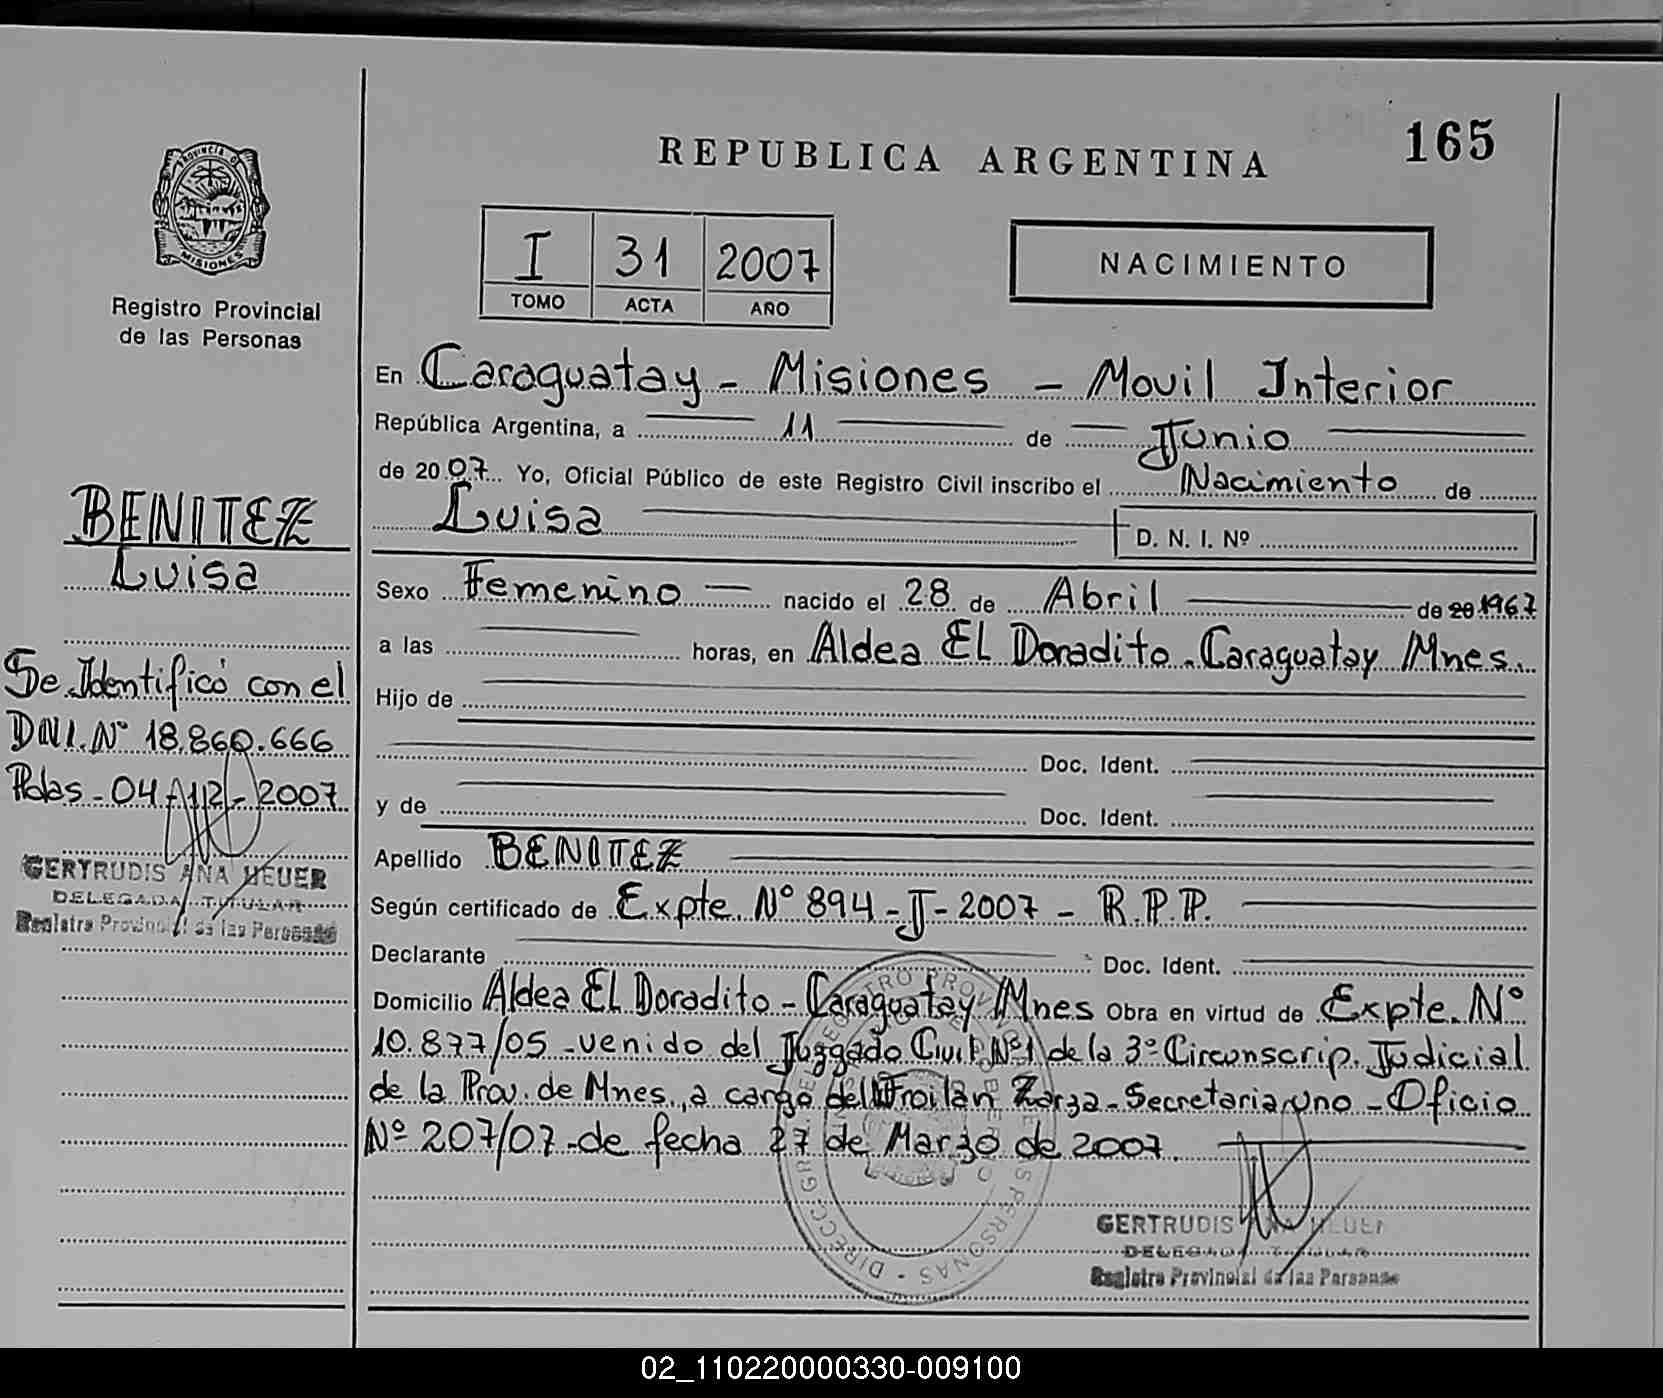 REPUBLICA ARGENTINA
165
PROVINCIA DE
MISIONES
Registro Provincial
de las Personas
I 31 2007
TOMO ACTA AÑO
NACIMIENTO
En Caraguatay - Misiones - Movil Interior
República Argentina, a 11 de Junio
de 2007. Yo, Oficial Público de este Registro Civil inscribo el Nacimiento de
Luisa
D. N. I. Nº
BENITEZ
Luisa
Sexo Femenino nacido el 28 de Abril de 20 1967
a las horas, en Aldea El Doradito. Caraguatay Mnes.
Hijo de
Doc. Ident.
y de Doc. Ident.
Apellido BENITEZ
Según certificado de Expte. Nº 894-J-2007 - R.P.P.
Declarante Doc. Ident.
Domicilio Aldea El Doradito - Caraguatay Mnes Obra en virtud de Expte. Nº
10.877/05 - venido del Juzgado Civil Nº1 de la 3º Circunscrip. Judicial
de la Prov. de Mnes., a cargo del Froilán Zarza - Secretaria uno - Oficio
Nº 207/07 - de fecha 27 de Marzo de 2007.
Se Identificó con el
DNI. Nº 18.860.666
Pdas - 04-12-2007
GERTRUDIS ANA HEUER
DELEGADA TITULAR
Registro Provincial de las Personas
GERTRUDIS ANA HEUER
DELEGADA TITULAR
Registro Provincial de las Personas
02_110220000330-009100